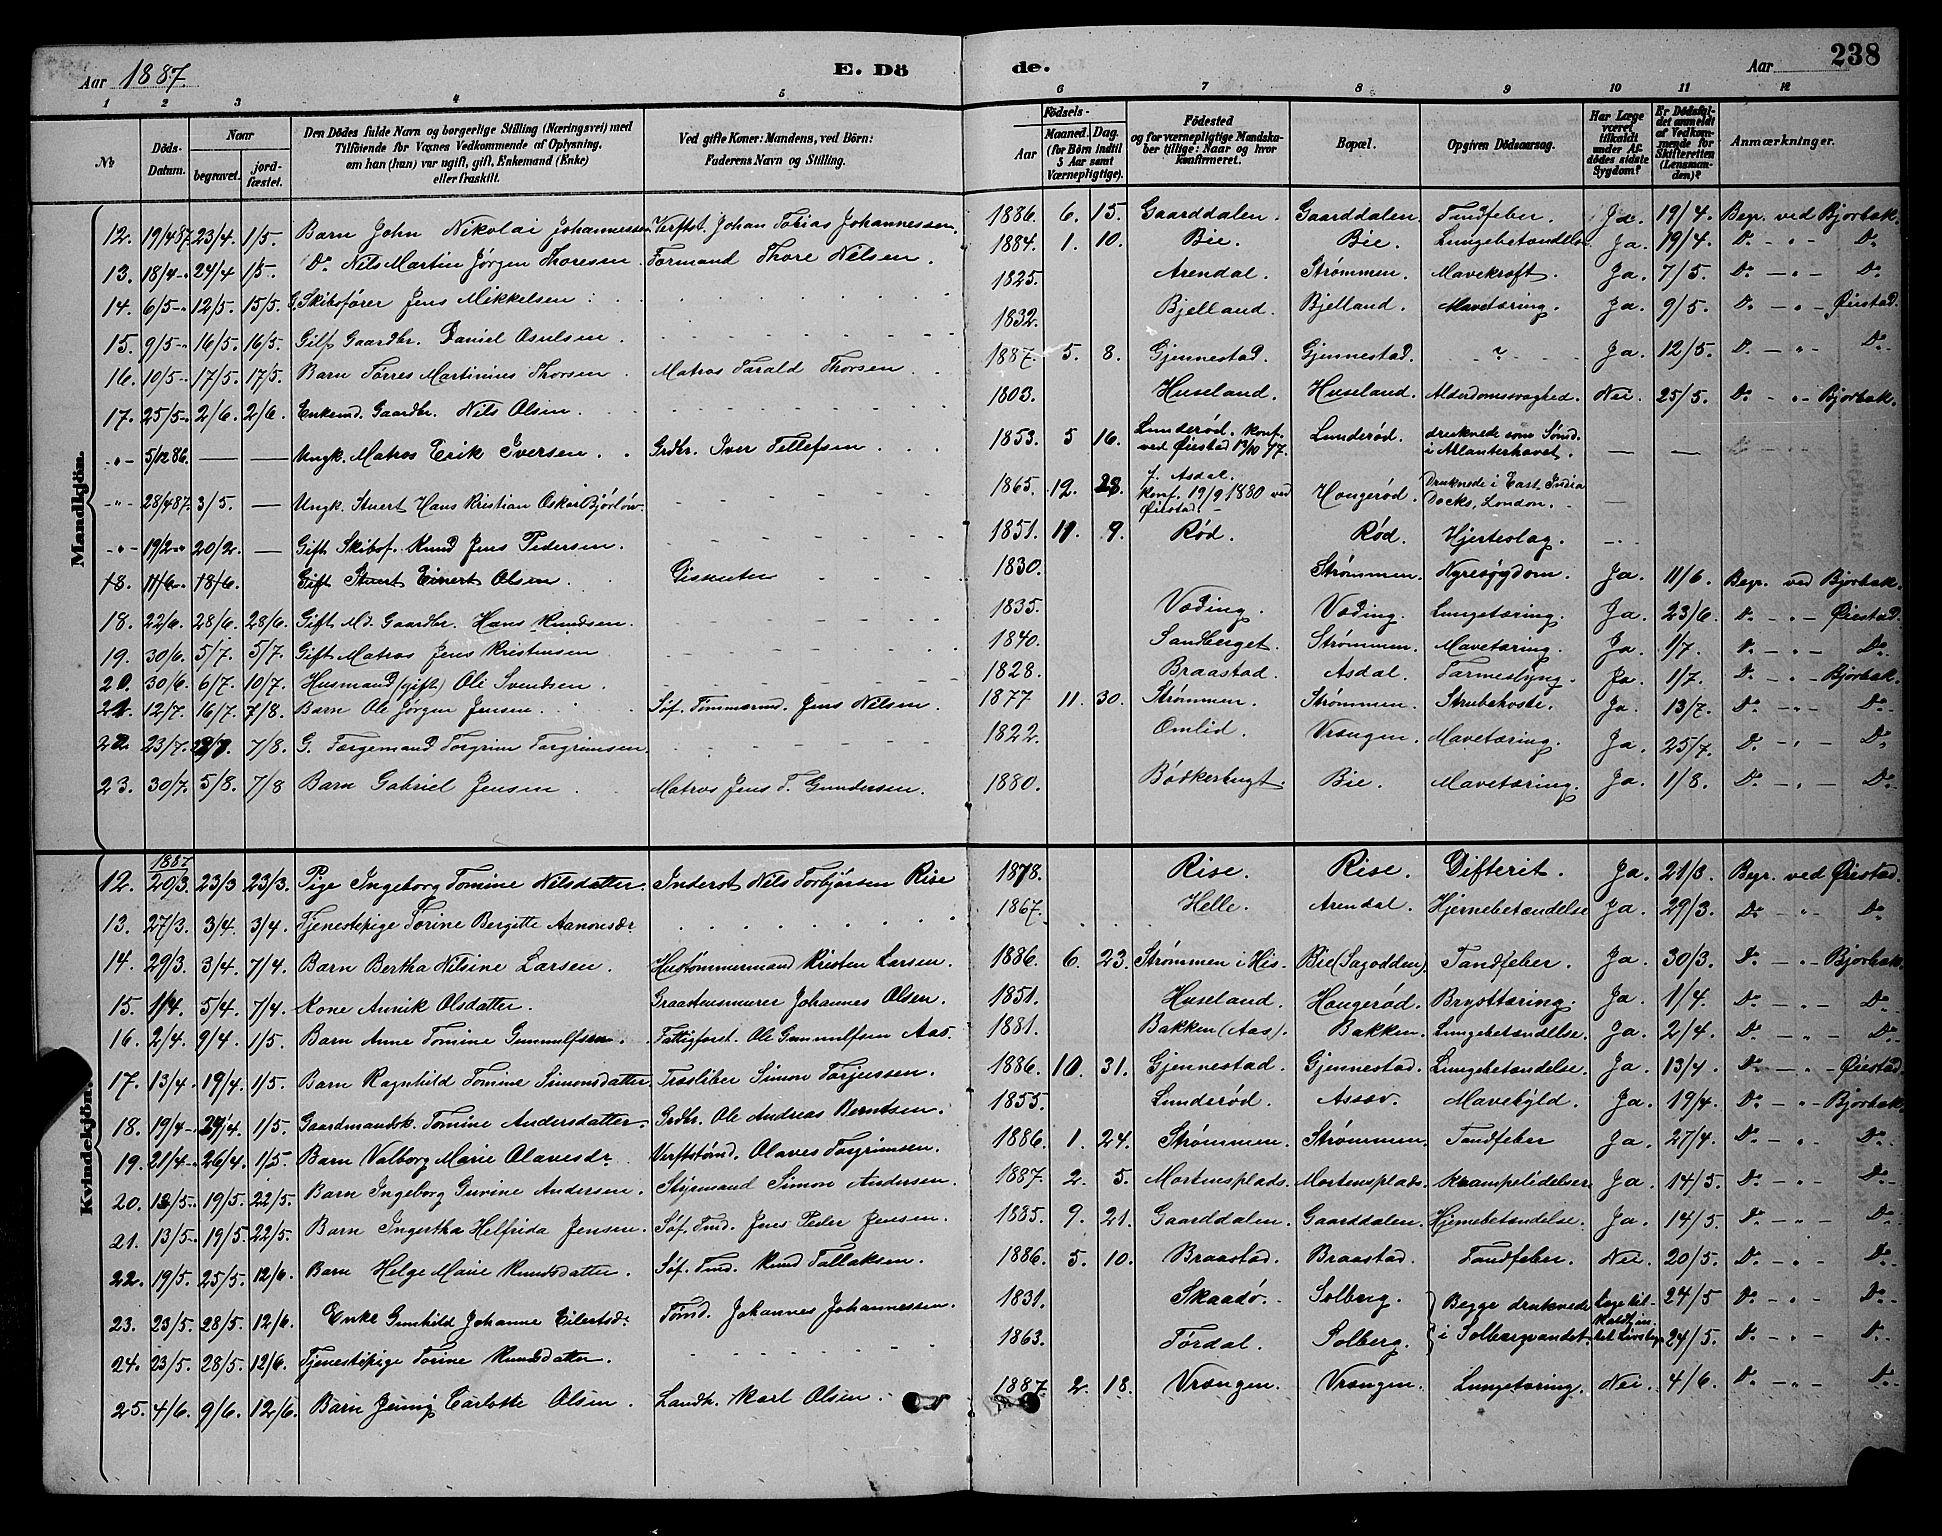 Aar 1887. E. Dö de. Aar 238
1 2 3 4 5 6 7 8 9 10 11 12
№ Döds-Datum. Naar begravet. jordfæstet. Den Dödes fulde Navn og borgerlige Stilling (Næringsvei) med Tilföiende for Voxnes Vedkommende af Oplysning, om han (hun) var ugift, gift, Enkemand (Enke) eller fraskilt. Ved gifte Koner: Mandens, ved Börn: Faderens Navn og Stilling. Födsels- Aar Maaned. Dag. (for Börn indtil 5 Aar samt Værnepligtige). Födested og for værnepligtige Mandskaber tillige: Naar og hvor konfirmeret. Bopæl. Opgiven Dödsaarsag. Har Læge været tilkaldt under Afdödes sidste Sygdom? Er Dödsfaldet anmeldt af Vedkommende for Skifteretten (Lensmanden)? Anmærkninger.
Mandkjön.
12. 19/4 87. 23/4 1/5. Barn John Nikolai Johannessen Verftst. Johan Tobias Johannessen. 1886. 6. 15. Gaarddalen. Gaarddalen. Tandfeber. Ja. 19/4. Begr. ved Bjorbak.
13. 18/4 - 24/4 1/5. Do Nils Martin Jørgen Thoresen Formand Thore Nilsen. 1884. 1. 10. Bie. Bie. Lungebetændelse Ja. 19/4. Do - " - Do
14. 6/5 - 12/5. 15/5. G. Skibsfører Jens Mikkelsen 1825. Arendal. Strømmen. Mavekræft. Ja. 7/5. Do - " - Do
15. 9/5 - 16/5. 16/5. Gift Gaardbr. Daniel Osulsen 1832. Bjelland. Bjelland. Mavetæring. Ja. 9/5. Do - " - Øiestad.
16. 10/5 - 17/5. 17/5. Barn Tørres Martinius Thorsen Matros Tarald Thorsen 1887. 5. 8. Gjennestad. Gjennestad. - ? - Ja. 12/5. Do - " - Do
17. 25/5 - 2/6. 2/6. Enkemd. Gaardbr. Nils Olsen. 1803. Huseland. Huseland. Alderdomssvaghed. Nei. 25/5. Do - " - Bjorbak.
" 5/12 86. — — Ungk. Matros Erik Iversen. Grdbr. Iver Tellefsen 1853. 5 16. Lunderød. konf. ved Øiestad 13/10 77. Lunderød. druknede som Sømd. i Atlanterhavet. — —
" 28/4 87. 3/5. — Ungk. Stuert Hans Kristian Oskar Bjørløw 1865. 12. 28. f. Asdal. konf. 19/9 1880 ved Øiestad. Hougerød. Druknede i East India Docks, London. —
" 19/2 " 20/2. — Gift Skibsf. Knud Jens Pedersen. 1851. 11. 9. Rød. Rød. Hjerteslag.
18. 11/6 " 18/6. Gift Stuert Einert Olsen 1830. Strømmen. Nyresygdom. Ja. 11/6. Begr. ved Bjorbak.
18. 22/6. 28/6. 28/6. Gift Md. Gaardbr. Hans Knudsen. 1835. Væding. Væding. Lungetæring. Ja. 23/6. Do - " - Øiestad.
19. 30/6. 5/7. 5/7. Gift Matros Jens Kristensen 1840. Sandberget. Strømmen. Mavetæring. Ja. 1/7. Do - " - Do
20. 30/6. 6/7. 10/7. Husmand (gift) Ole Svendsen 1828. Braastad. Asdal. Tarmeslyng. Ja. 1/7. Do - " - Bjorbak.
21. 12/7. 16/7. 7/8. Barn Ole Jørgen Jensen. Søf. Tømmermd. Jens Nilsen. 1877 11. 30. Strømmen. Strømmen. Strubehoste. Ja. 13/7. Do - " - Do
22. 23/7. 7/8. G. Færgemand Torgrim Torgrimsen 1822. Omlid. Vrængen. Mavetæring. Ja. 25/7. Do - " - Do
23. 30/7. 5/8. 7/8 Barn Gabriel Jensen Matros Jens T. Gundersen. 1880. Bødkerbugt Bie. Mavetæring. Ja. 1/8. Do - " - Do
Kvindekjön.
12. 1887 20/3. 23/3 23/3. Pige Ingeborg Tomine Nilsdatter. Inderst Nils Torbjørsen Rise 1878. Rise. Rise. Difterit. Ja. 21/3. Begr. ved Øiestad.
13. 27/3. 3/4. 3/4. Tjenestepige Torine Bergitte Aanonsdr 1867. Helle. Arendal. Hjernebetændelse Ja. 29/3. Do - " - Do
14. 29/3. 3/4. 7/4. Barn Bertha Nilsine Larsen. Hustømmermand Kristen Larsen. 1886. 6. 23. Strømmen i His. Bie (Sagodden) Tandfeber. Ja. 30/3. Do - " - Bjorbak.
15. 1/4. 5/4. 7/4. Kone Annik Olsdatter. Graastensmurer Johannes Olsen. 1851. Huseland. Hougerød. Brysttæring. Ja. 1/4. Do - " - Do
16. 2/4. 9/4. 1/5. Barn Anne Tomine Gunnulfsen. Fattigforst. Ole Gunnulfsen Aas. 1881. Bakken (Aas). Bakken. Lungebetændelse. Ja. 2/4. Do - " - Do
17. 13/4. 19/4. 1/5. Barn Ragnhild Tomine Simonsdatter. Træsliber Simon Torjussen. 1886. 10. 31. Gjennestad. Gjennestad. Lungebetændelse. Ja. 13/4. Do - " - Øiestad.
18. 19/4 - 24/4. 1/5. Gaardmandsk. Tomine Andersdatter. Grdbr. Ole Andreas Berntsen. 1855. Lunderød. Assæv. Mavebyld. Ja. 19/4. Do - " - Bjorbak.
19. 21/4 - 26/4. 1/5. Barn Valborg Marie Olavesdr. Verftstømd. Olaves Torgrimsen. 1886. 1. 24. Strømmen. Strømmen. Tandfeber Ja. 27/4. Do - " - Do
20. 13/5 - 19/5. 22/5. Barn Ingeborg Gurine Andersen. Styrmand Simon Andersen. 1887. 2. 5. Mortensplads. Mortensplads. Krampelidelser Ja. 14/5. Do - " - Do
21. 13/5 - 19/5. 22/5. Barn Ingertha Helfrida Jensen. Søf. Tmd. Jens Peder Jensen. 1885. 9. 21. Gaarddalen. Gaarddalen. Hjernebetændelse. Ja. 14/5. Do - " - Do
22. 19/5. 25/5. 12/6. Barn Helge Marie Knudsdatter. Søf. Tmd. Knud Tallaksen. 1886. 5. 10. Braastad. Braastad. Tandfeber. Nei. 20/5. Do - " - Do
23. 23/5. 28/5. 12/6. Enke Gunhild Johanne Eilertsdr Tømd. Johannes Johannessen. 1831. Skaadø. Solberg. Begge druknede Læge til- 24/5 Do - " - Do
24. 23/5. 28/5. 12/6. Tjenestepige Torine Knudsdatter. 1863. Tørdal. Solberg. i Solbergvandet. 24/5. Do - " - Do
25. 4/6. 9/6. 12/6. Barn Jenny Carlotte Olsen. Landh. Karl Olsen. 1887. 2. 18. Vrængen. Vrængen. Lungetæring. Nei. 4/6. Do - " - Do